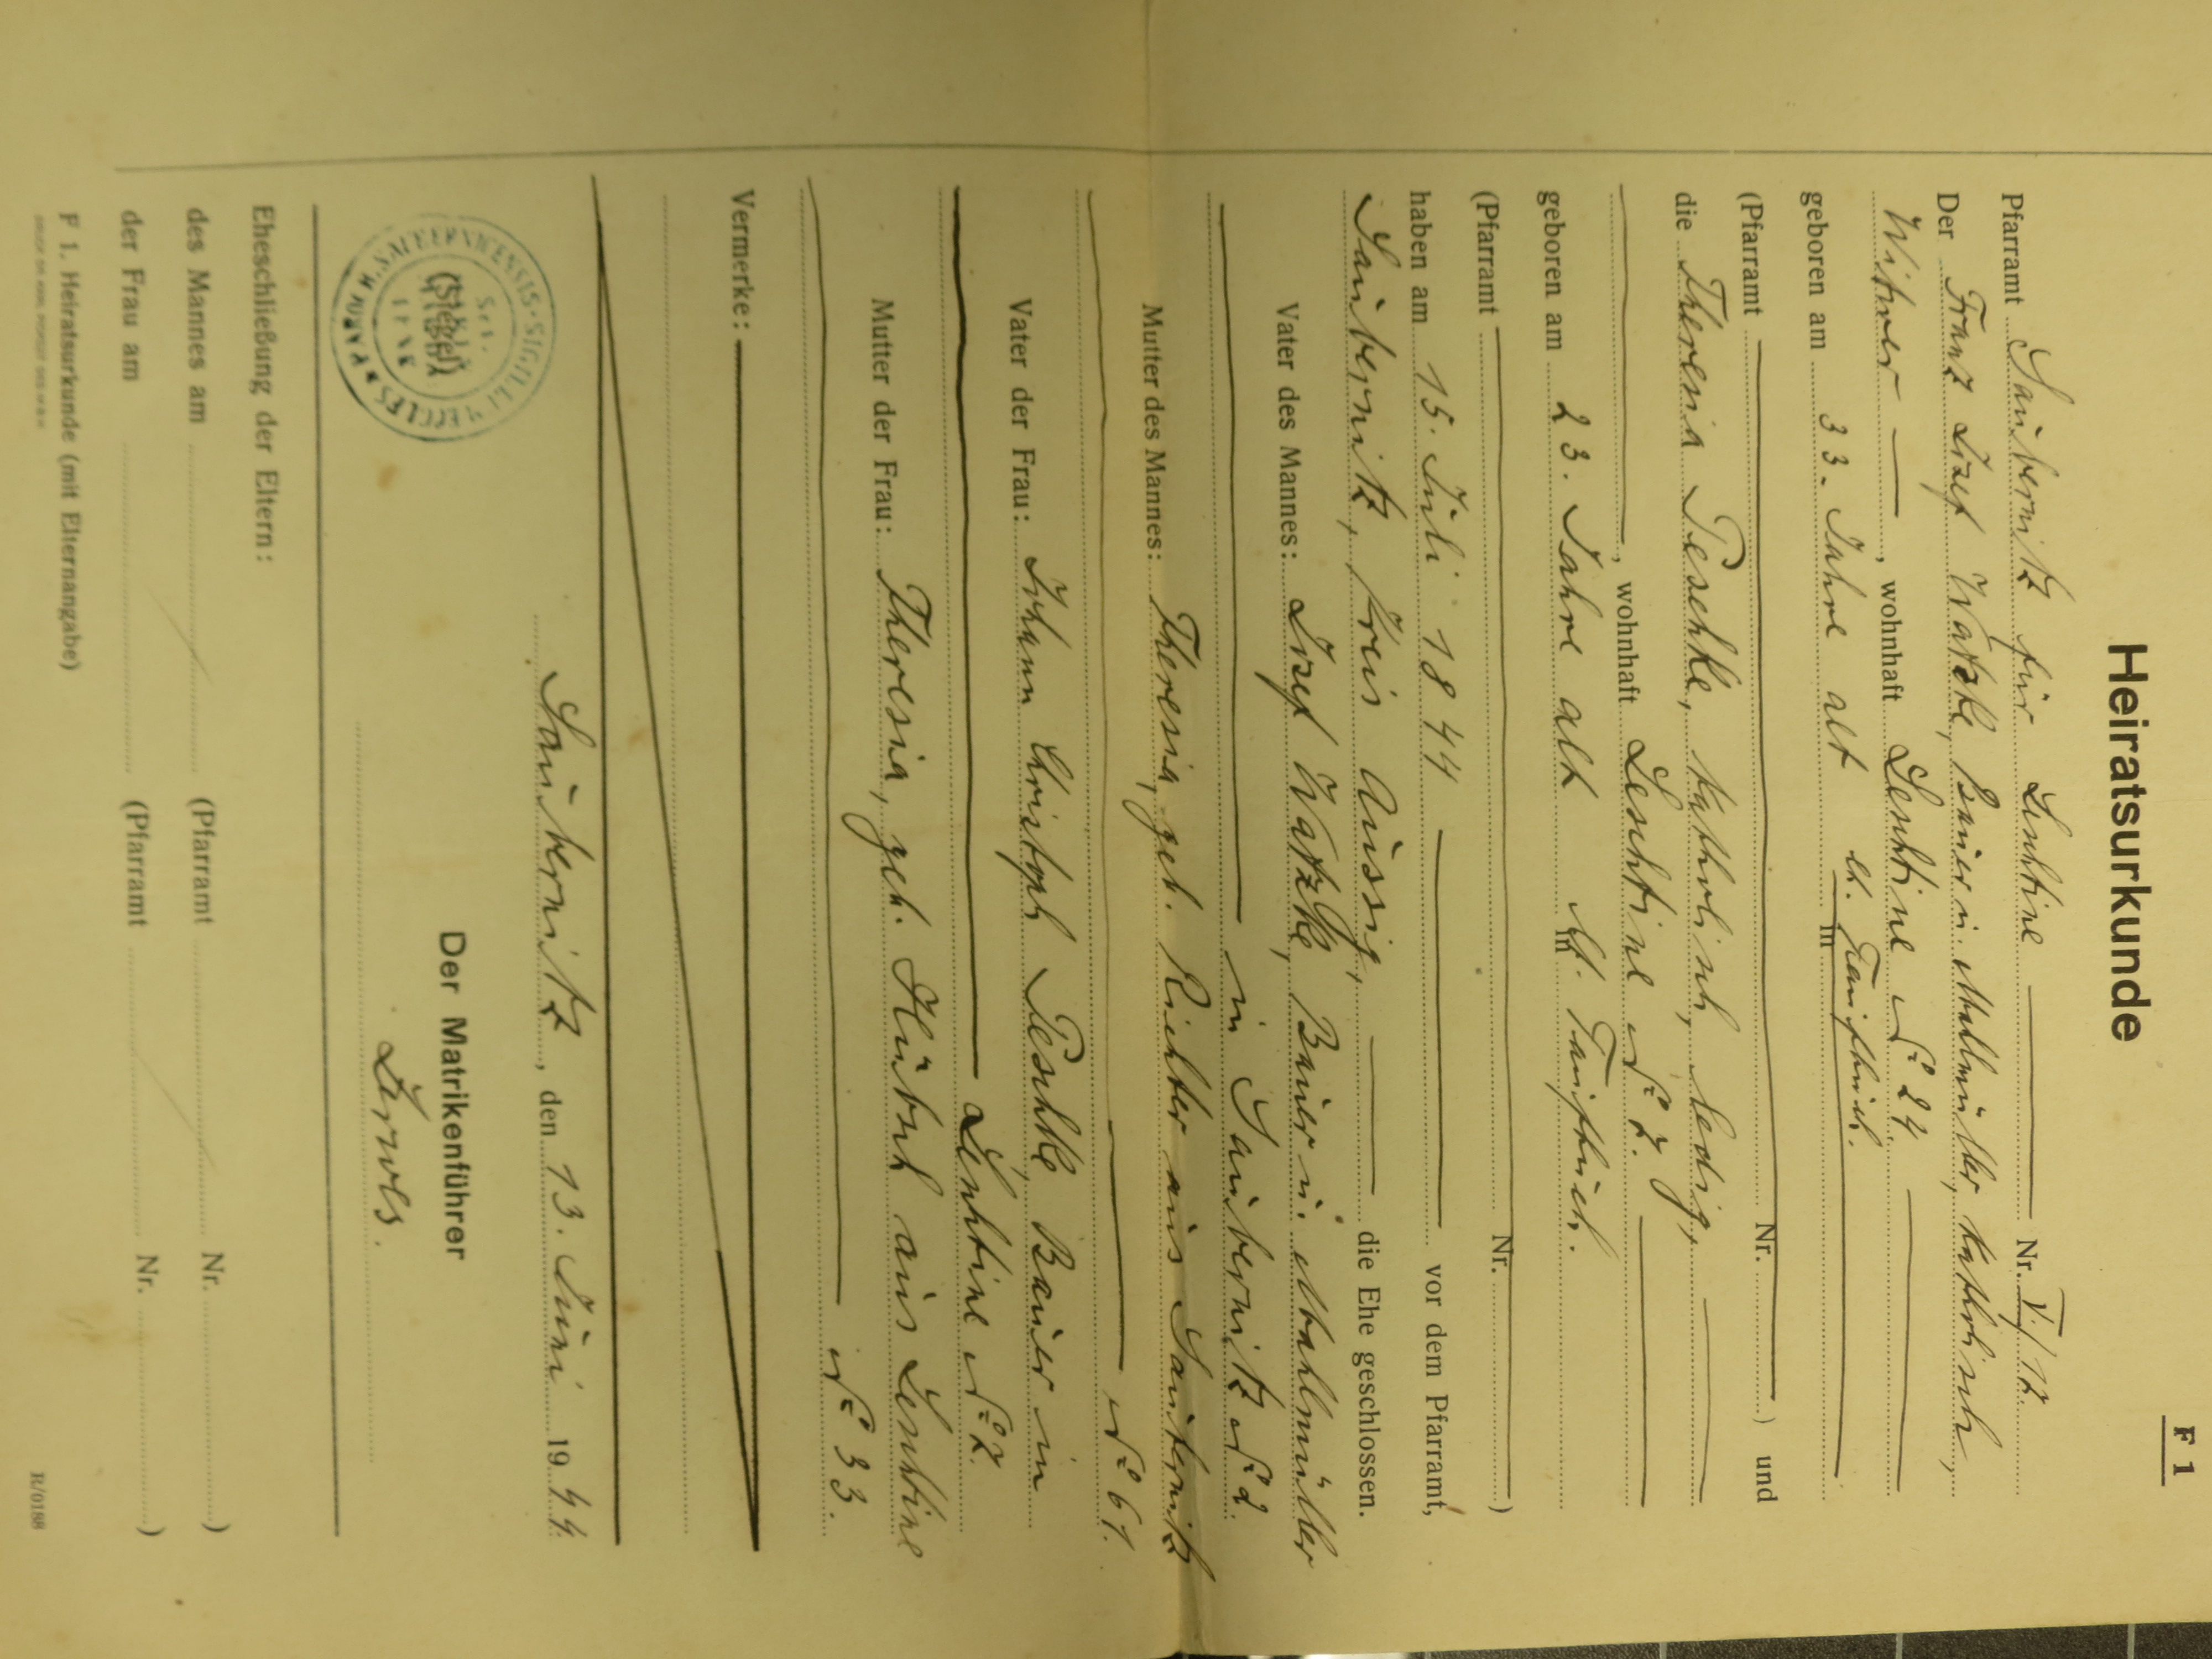 F 1
Heiratsurkunde
Pfarramt Saubernitz für Leschtine Nr. V./17.
Der Franz Josef Watzke, Bauer u. Mahlmüller, Katholisch,
Witwer, wohnhaft Leschtine No 24.
geboren am 33. Jahre alt lt. Taufbuch. in
(Pfarramt Nr. ) und
die Theresia Peschke, Katholisch, ledig,
, wohnhaft Leschtine No 7.
geboren am 23. Jahre alt lt. Taufbuch. in
(Pfarramt Nr. )
haben am 15. Juli 1844 vor dem Pfarramt,
Saubernitz, Kreis Aussig, die Ehe geschlossen.
Vater des Mannes: Josef Watzke, Bauer u. Mahlmüller
in Saubernitz No 2.
Mutter des Mannes: Theresia, geb. Richter aus Saubernitz
No 61.
Vater der Frau: Johann Christoph Peschke, Bauer in
Leschtine No 7.
Mutter der Frau: Theresia, geb. Hübsch aus Leschtine
No 33.
Vermerke:
Saubernitz, den 13. Juni 1944.
(Siegel)
Der Matrikenführer
Zerwes.
Eheschließung der Eltern:
des Mannes am (Pfarramt Nr. )
der Frau am (Pfarramt Nr. )
F 1. Heiratsurkunde (mit Elternangabe)
R/0188